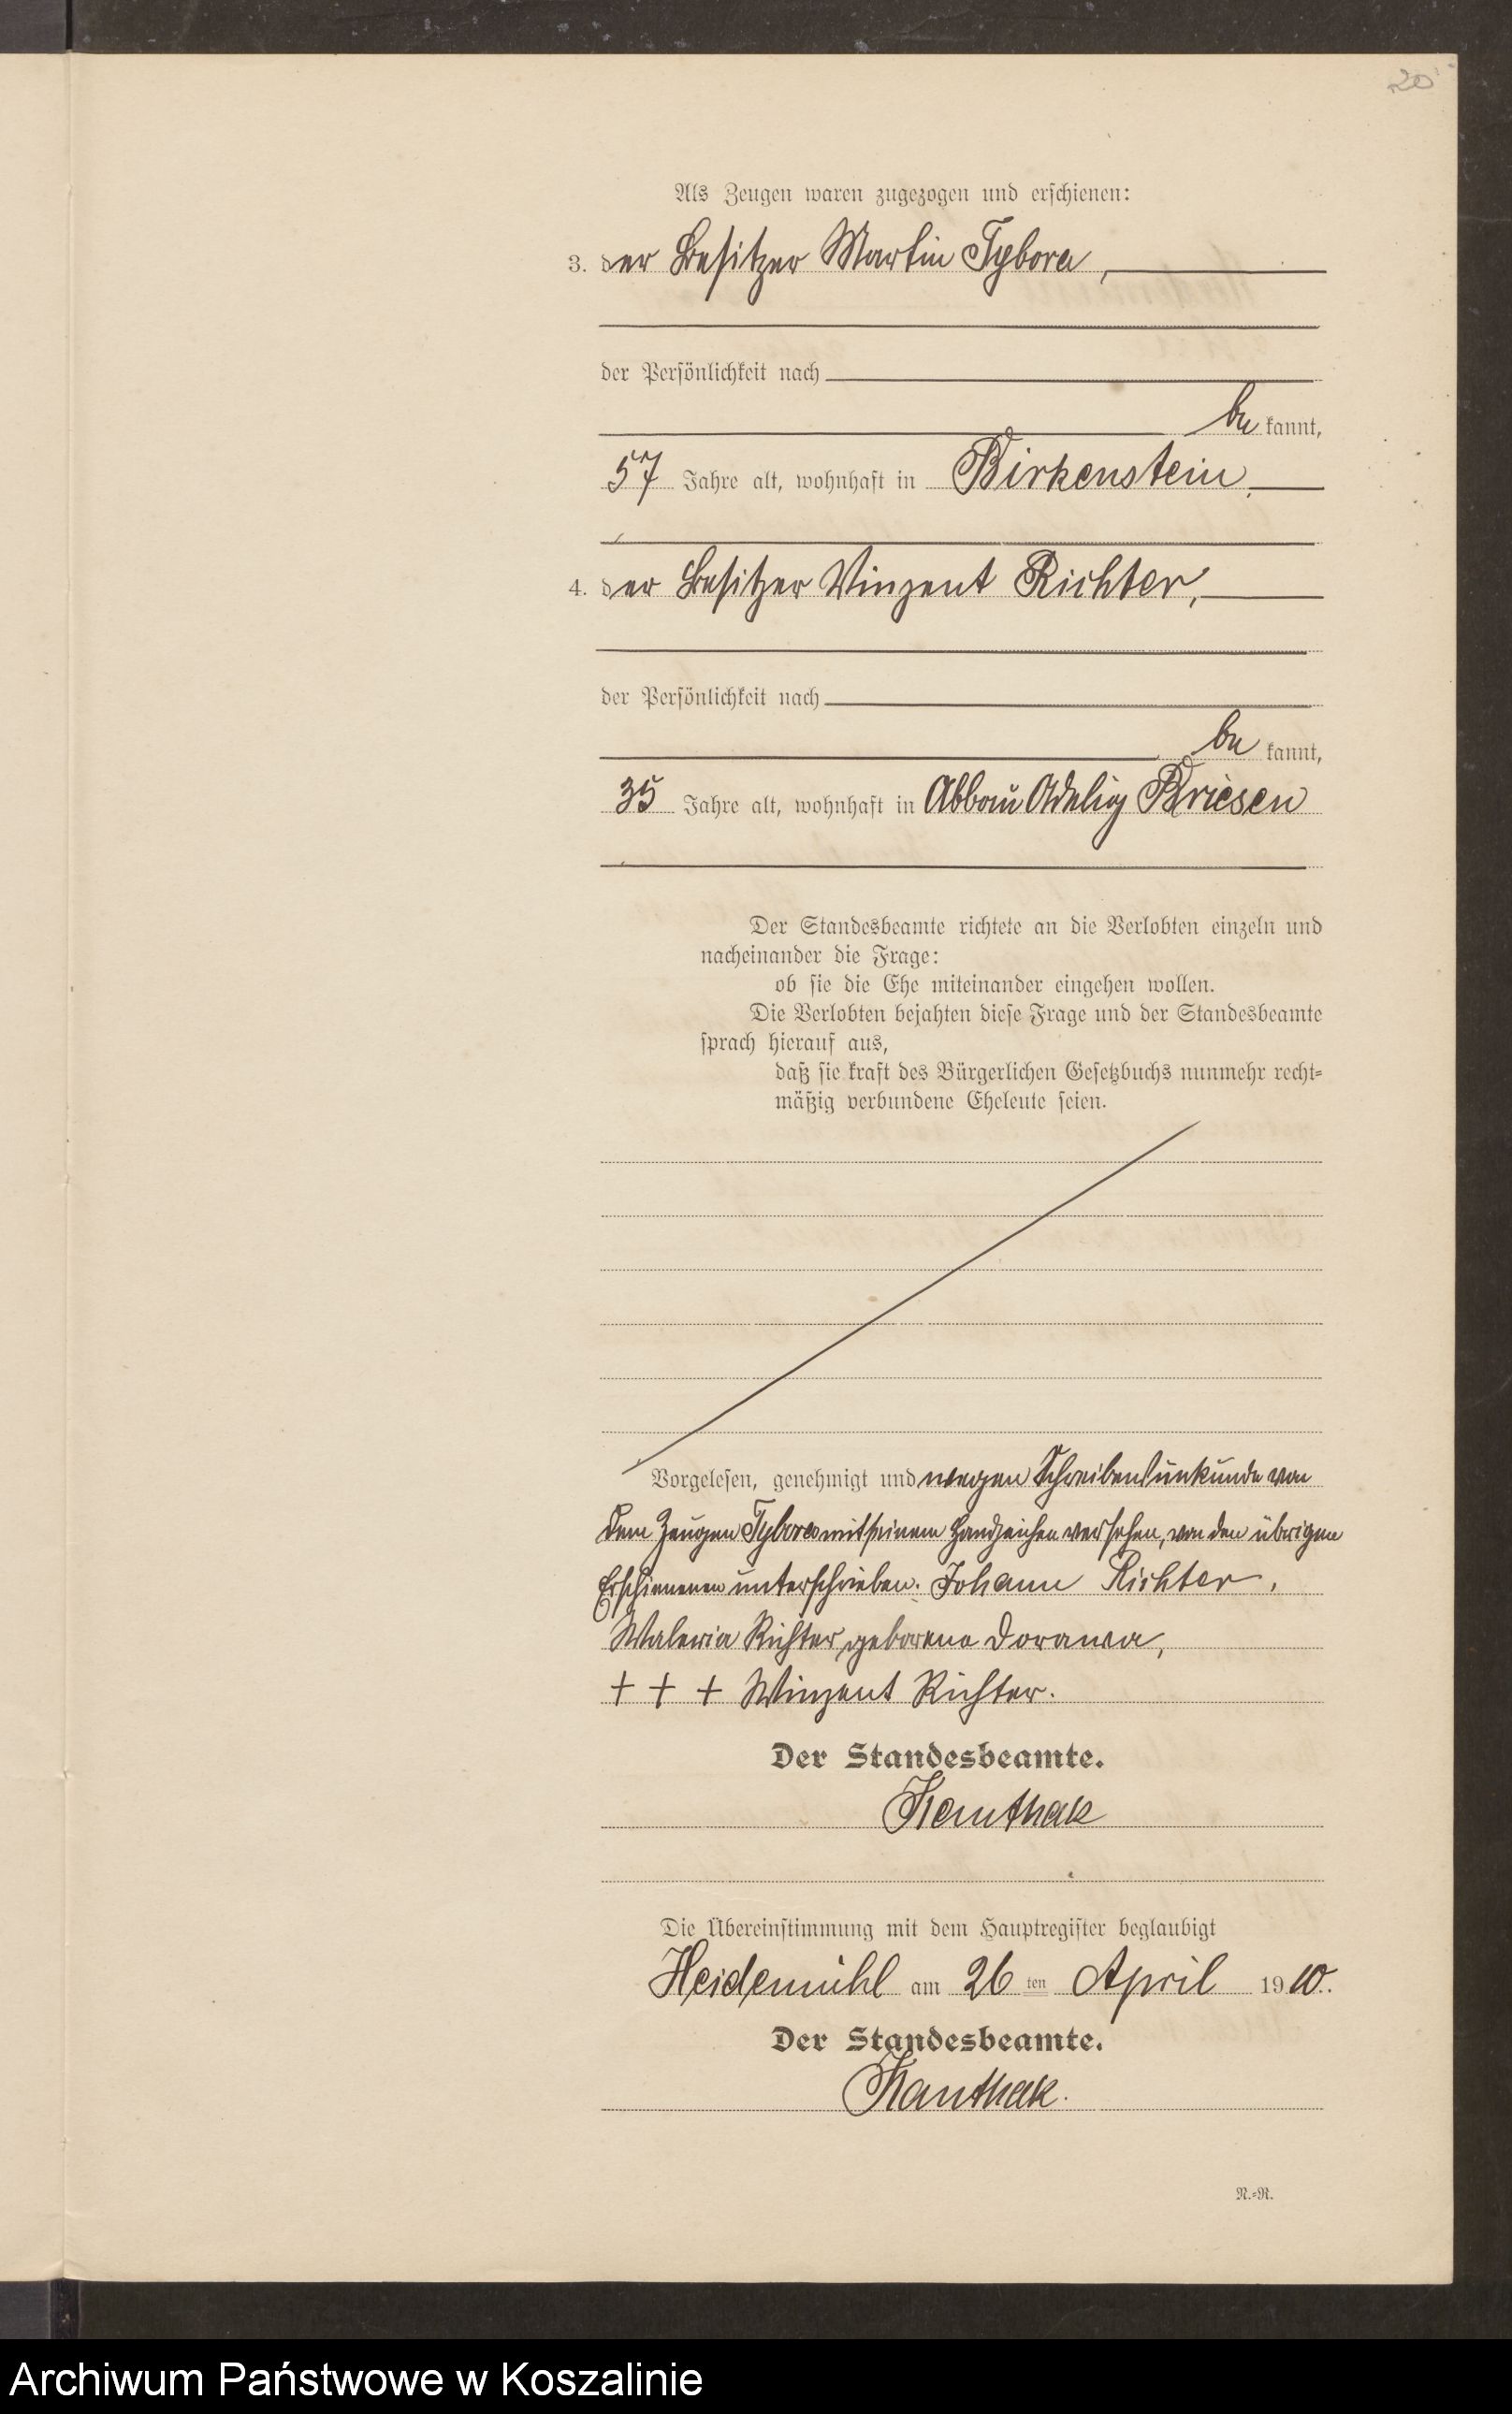 20
Als Zeugen waren zugezogen und erschienen:
3. der Besitzer Martin Tybora,
der Persönlichkeit nach
be kannt,
57 Jahre alt, wohnhaft in Birkenstein,
4. der Besitzer Vinzent Richter,
der Persönlichkeit nach
be kannt,
35 Jahre alt, wohnhaft in Abbau Adelig Briesen
Der Standesbeamte richtete an die Verlobten einzeln und
nacheinander die Frage:
ob sie die Ehe miteinander eingehen wollen.
Die Verlobten bejahten diese Frage und der Standesbeamte
sprach hierauf aus,
daß sie kraft des Bürgerlichen Gesetzbuchs nunmehr recht=
mäßig verbundene Eheleute seien.
Vorgelesen, genehmigt und wegen Schreibensunkunde von
dem Zeugen Tybora mit seinem Handzeichen versehen, von den übrigen
Erschienenen unterschrieben. Johann Richter,
Waleria Richter geborene Dorawa,
+ + + Winzent Richter.
Der Standesbeamte.
Kanthak
Die Übereinstimmung mit dem Hauptregister beglaubigt
Heidemühl am 26 ten April 1910.
Der Standesbeamte.
Kanthak.
N.=R.
Archiwum Państwowe w Koszalinie